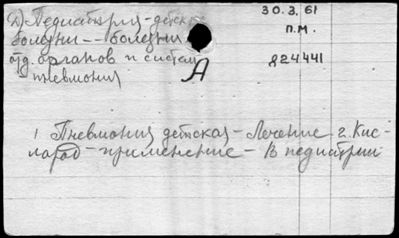 2) Педиатрия - детские
болезни -- болезни
отд. органов и систем
- пневмония
30.3.61
П.М.
А
824441
1 Пневмония детская - Лечение 2. Кис-
лород - применение - В педиатрии